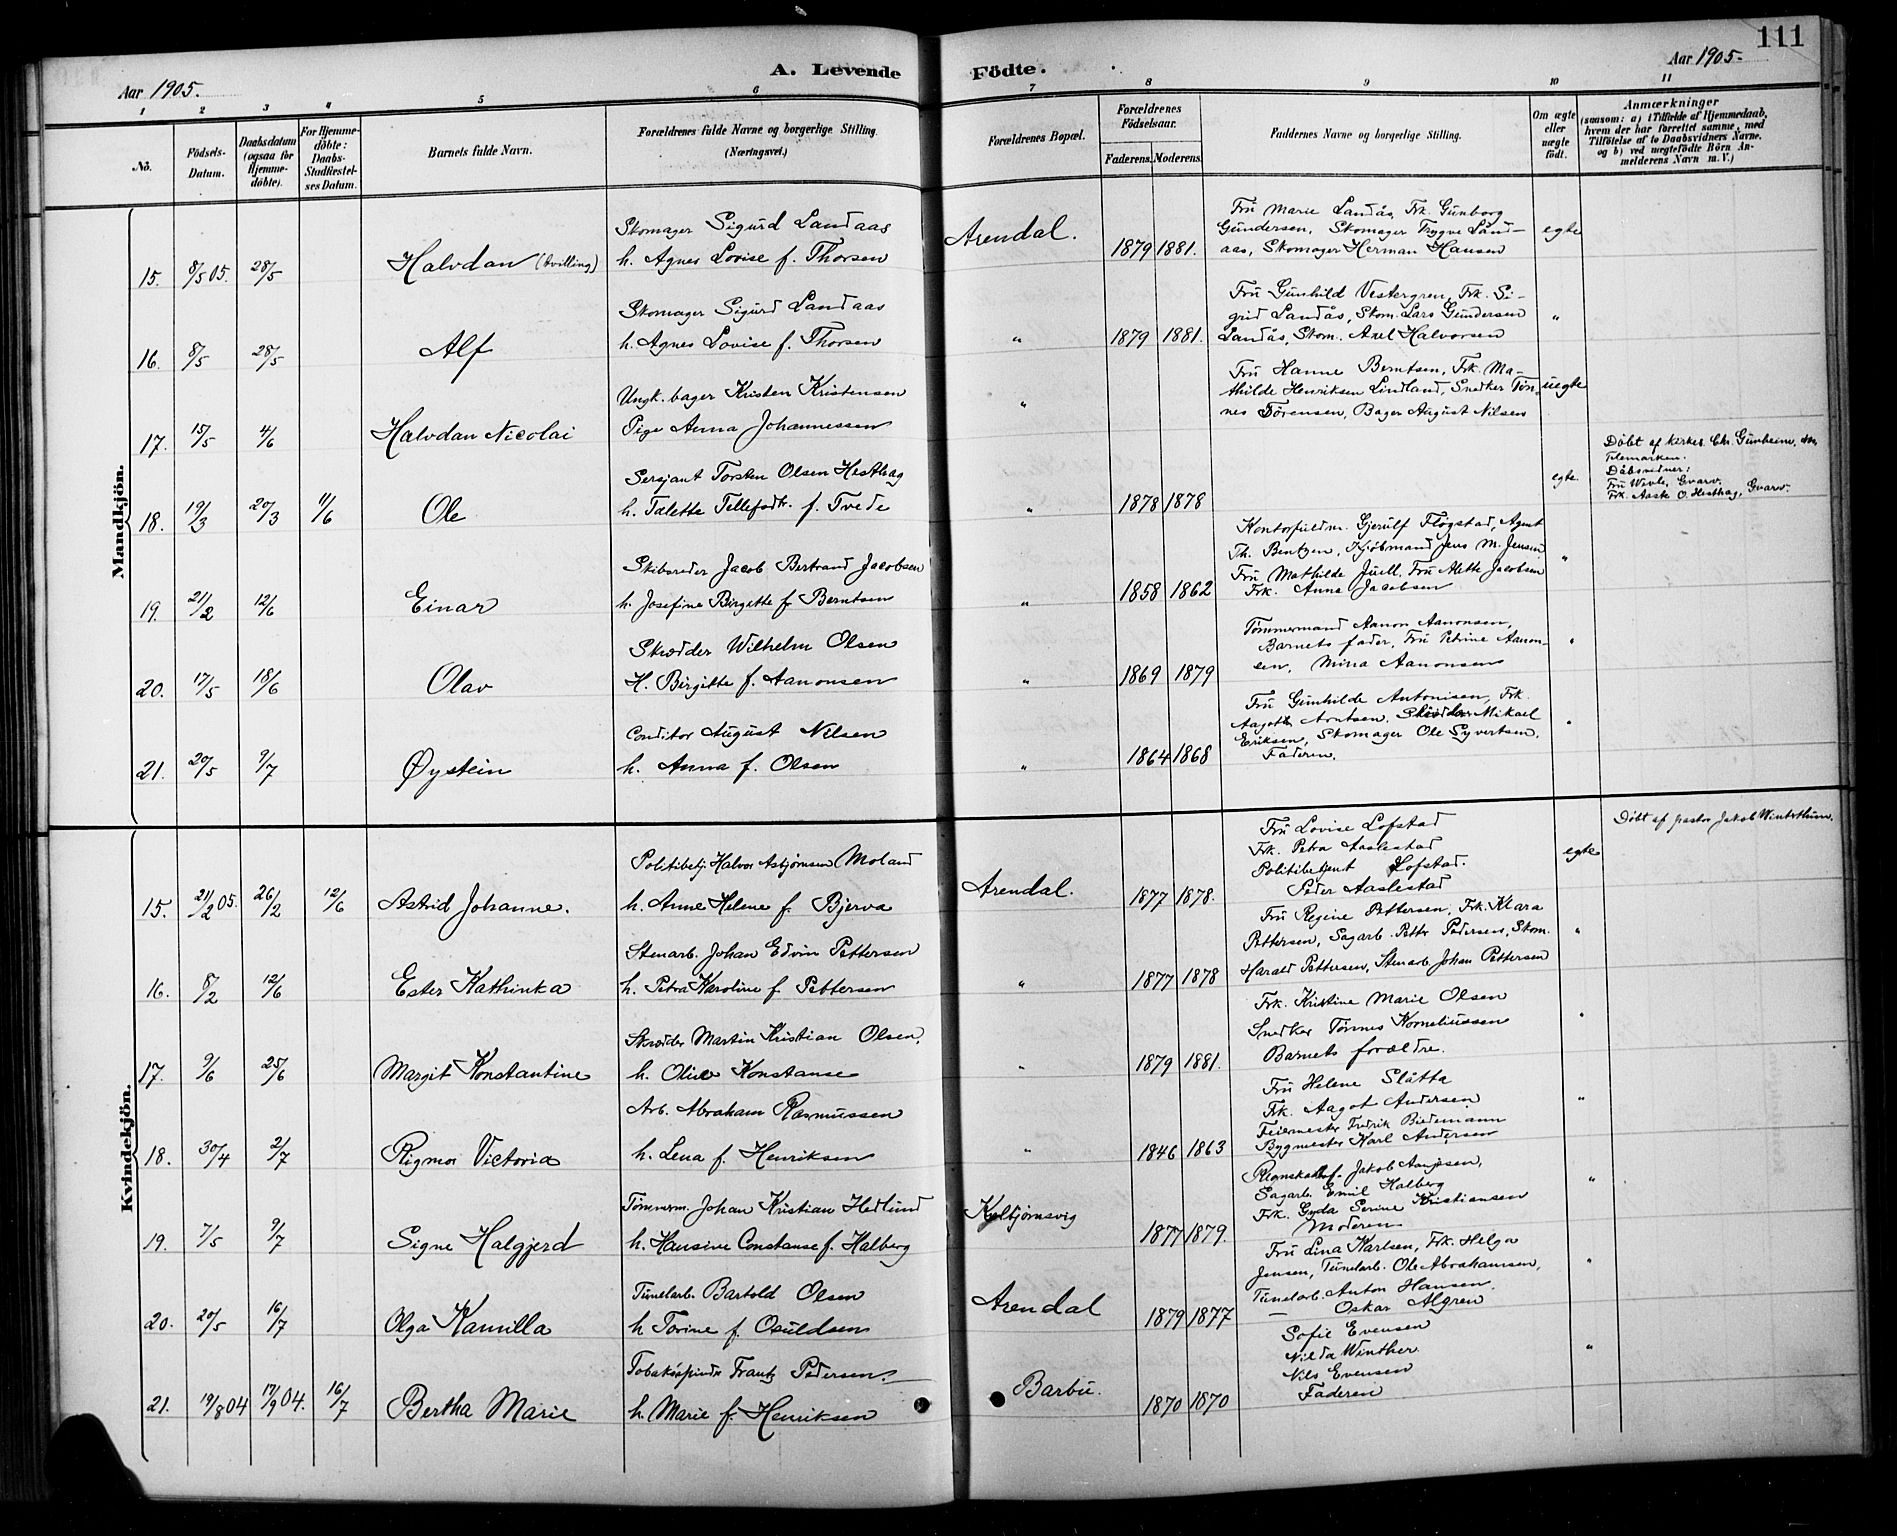 111
Aar 1905.
A. Levende Födte.
Aar 1905.
1 2 3 4 5 6 7 8 9 10 11
No.
Födsels-Datum.
Daabsdatum (ogsaa for Hjemmedöbte).
For Hjemmedöbte: Daabs-Stadfestelses Datum.
Barnets fulde Navn.
Forældrenes fulde Navne og borgerlige Stilling. (Næringsvei.)
Forældrenes Bopæl.
Forældrenes Födselsaar.
Faderens. Moderens.
Faddernes Navne og borgerlige Stilling.
Om ægte eller uægte födt.
Anmærkninger
(saasom: a) i Tilfælde af Hjemmedaab, hvem der har forrettet samme, med Tilföielse af to Daabsvidners Navne, og b) ved uægtefödte Börn Anmelderens Navn m. V.)
Mandkjön.
Skomager Sigurd Landaas
15. 8/5 05. 28/5 Halvdan (tvilling) h. Agnes Lovise f. Thorsen Arendal. 1879 1881.
Fru Marie Landås, Frk. Gunborg
Gundersen, Skomager Trygve Land-
aas, Skomager Herman Hansen
egte
Skomager Sigurd Landaas
16. 8/5 28/5 Alf h. Agnes Lovise f. Thorsen " 1879 1881.
Fru Gunhild Vestergren, Frk. Si-
grid Landås, Skom. Lars Gundersen
Landås, Skom. Axel Halvorsen
"
Ungk. bager Kristen Kristensen
17. 15/5 4/6 Halvdan Nicolai Pige Anna Johannessen "
Fru Hanne Berntsen, Frk. Ma-
thilde Henriksen Lindland, Snedker Tøn-
nes Sørensen, Bager August Nilsen
uegte
Sersjant Torsten Olsen Hesthag
18. 19/3 20/3 11/6 Ole h. Talette Tellefsdtr. f. Tvede " 1878 1878
egte
Døbt af kirkes. Chr. Gunheim,
Telemarken.
Dåbsvidner:
Fru Wivle, Gvarv.
Frk. Aaste O. Hesthag, Gvarv.
Skibsreder Jacob Bertrand Jacobsen
19. 21/2 12/6 Einar h. Josefine Birgitte f. Berntsen " 1858 1862
Kontorfuldm. Gjerulf Fløgstad, Agent
Th. Bentzen, Kjøbmand Jens M. Jensen
Fru Mathilde Juell, Fru Alette Jacobsen
Frk. Anna Jacobsen
"
Skrædder Wilhelm Olsen
20. 17/5 18/6 Olav H. Birgitte f. Aanonsen " 1869 1879
Tømmermand Aanon Aanonsen,
Barnets fader, Fru Petrine Aanon-
sen, Mina Aanonsen
"
Conditor August Nilsen
21. 20/5 9/7 Øystein h. Anna f. Olsen " 1864 1868
Fru Gunhilde Antonisen, Frk.
Aagoth Arntsen, Skrædder Mikael
Eriksen, Skomager Ole Syvertsen,
Faderen.
"
Kvindekjön.
Politibetj. Halvor Asbjørnsen Moland
15. 21/2 05. 26/2 12/6 Astrid Johanne. h. Anne Helene f. Bjerva Arendal. 1877 1878.
Fru Lovise Lofstad
Frk. Petra Aaslestad
Politibetjent Lofstad.
Peder Aaslestad
egte
Døbt af pastor Jakob Winterthun.
Stenarb. Johan Edvin Pettersen
16. 8/2 12/6 Ester Kathinka h. Petra Karoline f. Pettersen " 1877 1878
Fru Regine Pettersen, Frk. Klara
Pettersen, Sagarb. Petter Pedersen, Skom.
Harald Pettersen, Stenarb. Johan Pettersen
"
Skrædder Martin Kristian Olsen,
17. 9/6 25/6 Margit Konstantine h. Olive Konstanse " 1879 1881.
Frk. Kristine Marie Olsen
Snedker Tønnes Korneliussen
Barnets forældre.
"
Arb. Abraham Rasmussen
18. 30/4 2/7 Rigmor Victoria h. Lena f. Henriksen " 1846 1863
Fru Helene Slåtta
Frk. Aagot Andersen
Feiermester Fredrik Biedemann
Bygmester Karl Andersen
"
Tømmerm. Johan Kristian Hedlund
19. 7/5 9/7 Signe Halgjerd h. Hansine Constanse f. Halberg Kolbjørnsvig 1877 1879.
Jakob
Sagarb. Emil Halberg
Frk. Gyda Serine Kristiansen
Moderen
"
Tunelarb. Bartold Olsen
20. 20/5 16/7 Olga Kamilla h. Torine f. Osuldsen Arendal 1879 1877
Fru Lina Karlsen, Frk. Helga
Jensen, Tunelarb. Ole Abrahamsen,
Tunelarb. Anton Hansen.
— Oskar Algren
"
Tobaksspinder Frantz Pedersen.
21. 19/8 04 17/9 04. 16/7 Bertha Marie h. Marie f. Henriksen Barbu. 1870 1870
Sofie Evensen
Nilda Winther.
Nils Evensen
Faderen
"